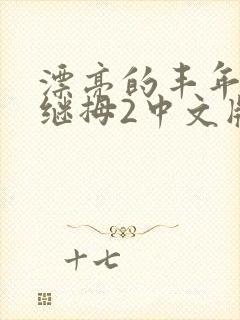 漂亮的丰年
继拇2中文版
十七